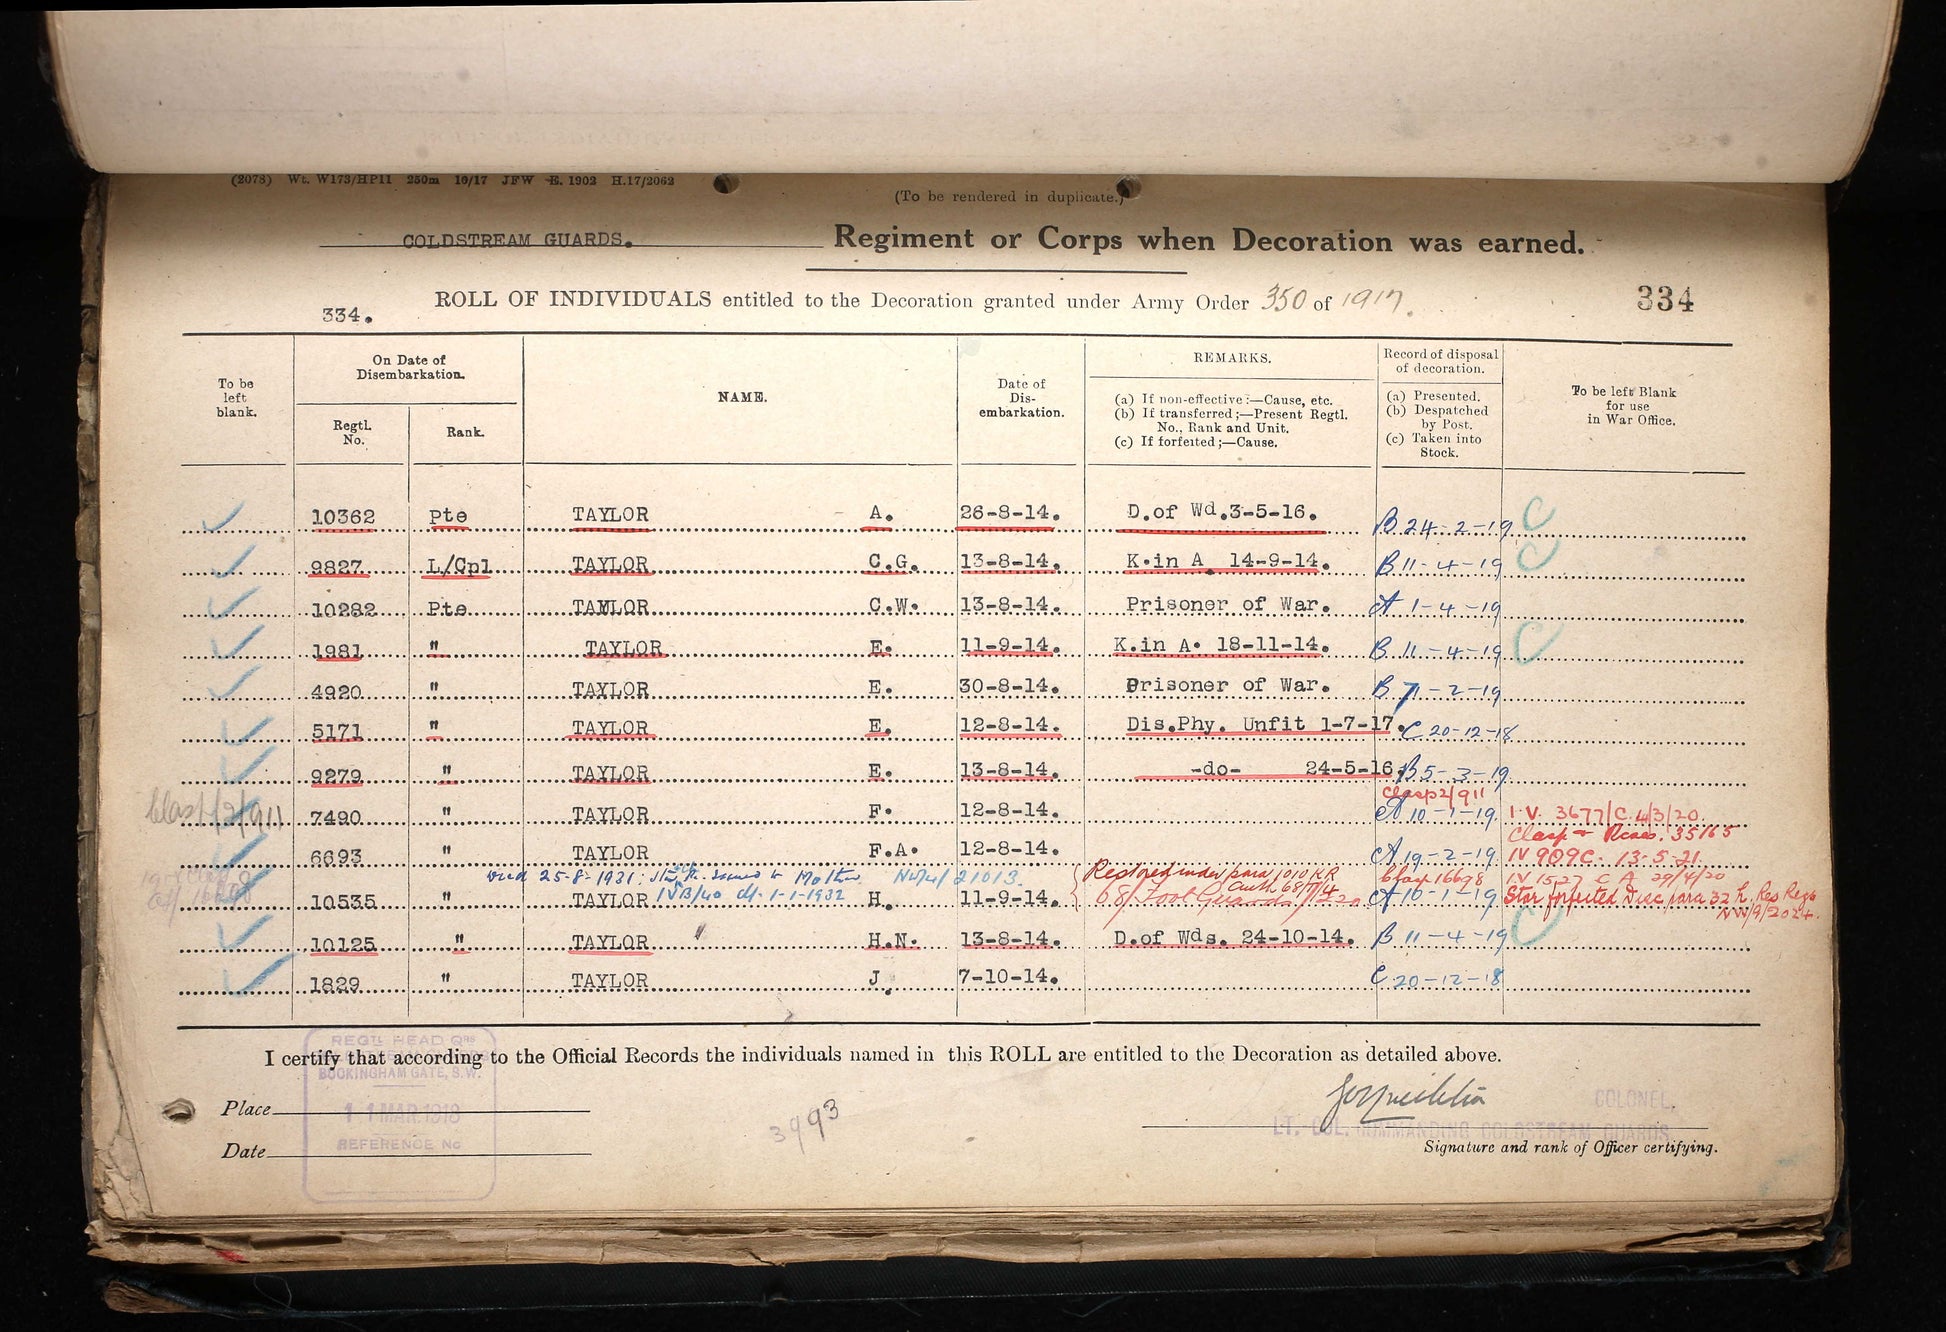 (2078) Wt. W173/HP11 250m 10/17 JFW E. 1902 H.17/2062
(To be rendered in duplicate.)
COLDSTREAM GUARDS. Regiment or Corps when Decoration was earned.
334. ROLL OF INDIVIDUALS entitled to the Decoration granted under Army Order 350 of 1917. 334
To be left blank.
On Date of Disembarkation.
Regtl. No.
Rank.
NAME.
Date of Dis-embarkation.
REMARKS.
(a) If non-effective:—Cause, etc.
(b) If transferred;—Present Regtl. No., Rank and Unit.
(c) If forfeited;—Cause.
Record of disposal of decoration.
(a) Presented.
(b) Despatched by Post.
(c) Taken into Stock.
To be left Blank for use in War Office.
10362 Pte TAYLOR A. 26-8-14. D.of Wd.3-5-16. B 24-2-19 C
9827 L/Cpl TAYLOR C.G. 13-8-14. K.in A. 14-9-14. B 11-4-19 C
10282 Pte TAYLOR C.W. 13-8-14. Prisoner of War. A 1-4-19
1981 " TAYLOR E. 11-9-14. K.in A. 18-11-14. B 11-4-19 C
4920 " TAYLOR E. 30-8-14. Prisoner of War. B 7-2-19
5171 " TAYLOR E. 12-8-14. Dis.Phy. Unfit 1-7-17. C 20-12-18
9279 " TAYLOR E. 13-8-14. -do- 24-5-16. B 5-3-19
Clasp 2/911
Clasp/2/911 7490 " TAYLOR F. 12-8-14. A 10-1-19. I.V. 3677/C 4/3/20.
Clasp & Roses. 35165
6693 " TAYLOR F.A. 12-8-14. A 19-2-19. IV 909C. 13-5-21
Died 25-8-1931: Star issued to Mother NW/4/21013.
Restored under para 1010 KR
Clasp 16698 I.V 1527 C A 29/4/20
IVB/40 dt. 1-1-1932
Auth 68/7/4
10535 " TAYLOR H. 11-9-14. 68/Foot Guards A 10-1-19 Star forfeited Disc para 32 h. Res Regs
NW/9/2024.
10125 " TAYLOR " H.N. 13-8-14. D.of Wds. 24-10-14. B 11-4-19 C
1829 " TAYLOR J. 7-10-14. C 20-12-18
I certify that according to the Official Records the individuals named in this ROLL are entitled to the Decoration as detailed above.
REGTL HEAD QRS
BUCKINGHAM GATE, S.W.
11 MAR 1918
REFERENCE No
Place
Date
3993
COLONEL,
LT. COL. COMMANDING COLDSTREAM GUARDS
Signature and rank of Officer certifying.